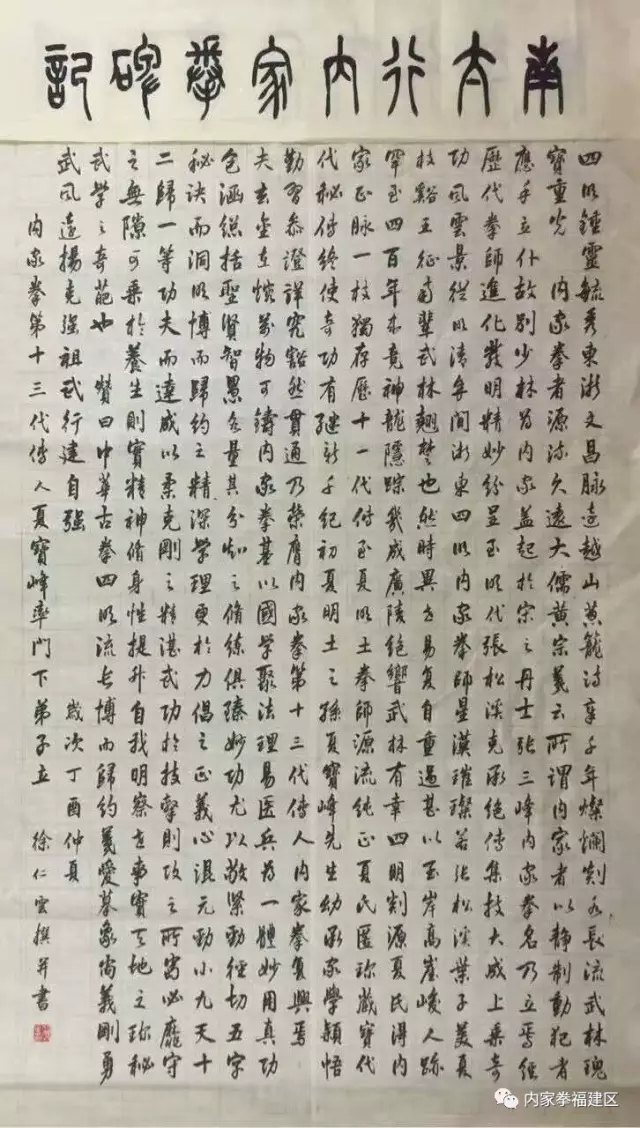 南太行内家拳碑記
四明鍾靈毓秀東浙文昌脉遠越山黄龍诗享千年燦爛剡水長流武林瑰
寶重光 内家拳者源流久遠大儒黄宗羲云所謂内家者以静制動犯者
應手立仆故别少林为内家蓋起於宋之丹士張三峰内家拳名乃立焉经
歷代拳師進化發明精妙纷呈至明代張松溪克承绝傳集技大成上乘奇
功風雲景從明清年间浙東四明内家拳師星漢璀璨若张松溪葉子美夏
枝谿王征南輩武林翘楚也然時異世易复自重過甚以至岸高崖峻人跡
罕至四百年来竟神龍隱踪幾成廣陵绝響武林有幸四明剡源夏氏得内
家正脉一枝獨存歷十一代传至夏明土拳師源流纯正夏氏匿珍藏寶代
代秘传终使奇功有继新千纪初夏明土之孫夏寶峰先生幼承家學颖悟
勤習参證詳究豁然貫通乃榮膺内家拳第十三代傳人内家拳复興焉
夫玄金在熔萬物可鑄内家拳基以國學聚法理易医兵为一體妙用真功
包涵總括聖賢智愚各量其分知之脩練俱臻妙功尤以敬紧勁徑切五字
秘决而洞明博而歸约之精深學理更於力倡之正義心混元勁小九天十
二歸一等功夫而達成以柔克剛之精湛武功於技擊則攻之所必靡守
之無隙可乘於養生則實精神脩身性提升自我明察世事實天地之珍秘
武學之奇葩也 赞曰中華古拳四明流長博而歸约象尚義剛勇
武風遠揚克强祖武行建自强 歲次丁酉仲夏
内家拳第十三代傳人夏寶峰率門下弟子立 徐仁雲撰并書
内家拳福建区